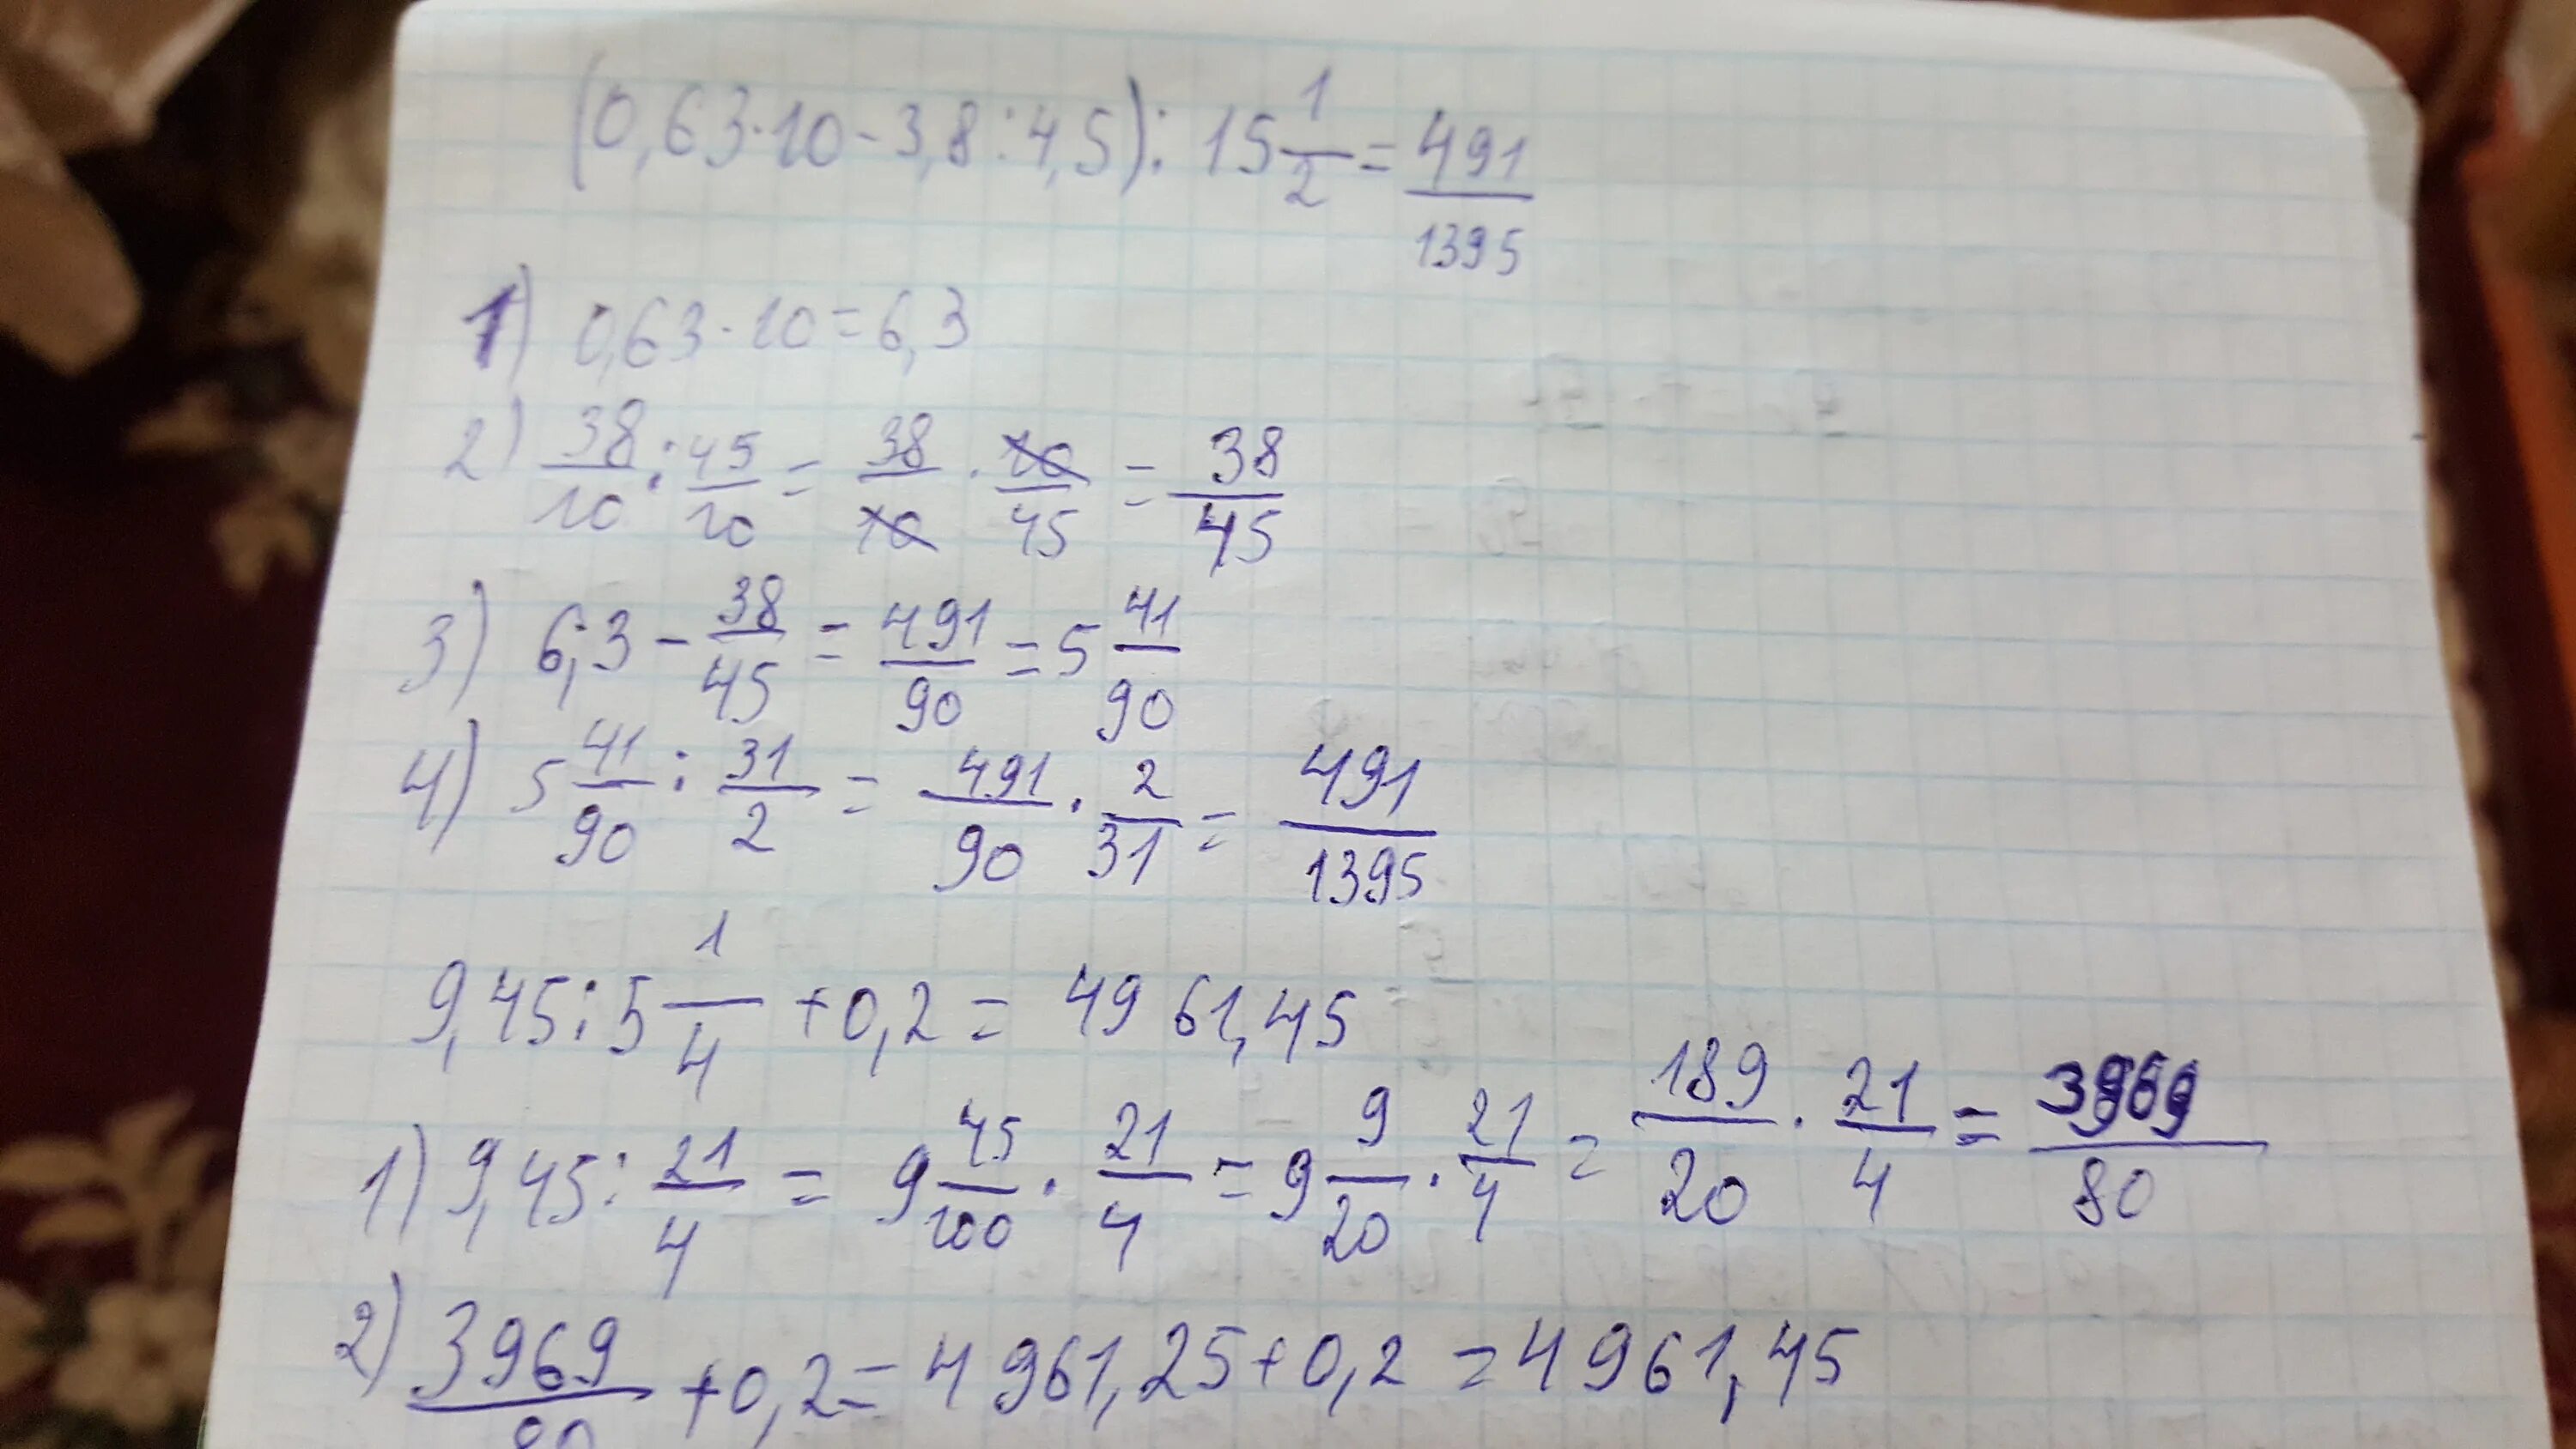 (0,63·10-3,8:4,5):15 1/2=491/1395
1) 0,63·10=6,3
2) 38/10:45/10=38/10·10/45=38/45
3) 6,3-38/45=491/90=5 41/90
4) 5 41/90:31/2=491/90·2/31=491/1395
9,45:5 1/4+0,2=4961,45
1) 9,45:21/4=9 45/100·21/4=9 9/20·21/4=189/20·21/4=3969/80
2) 3969/80+0,2=4961,25+0,2=4961,45